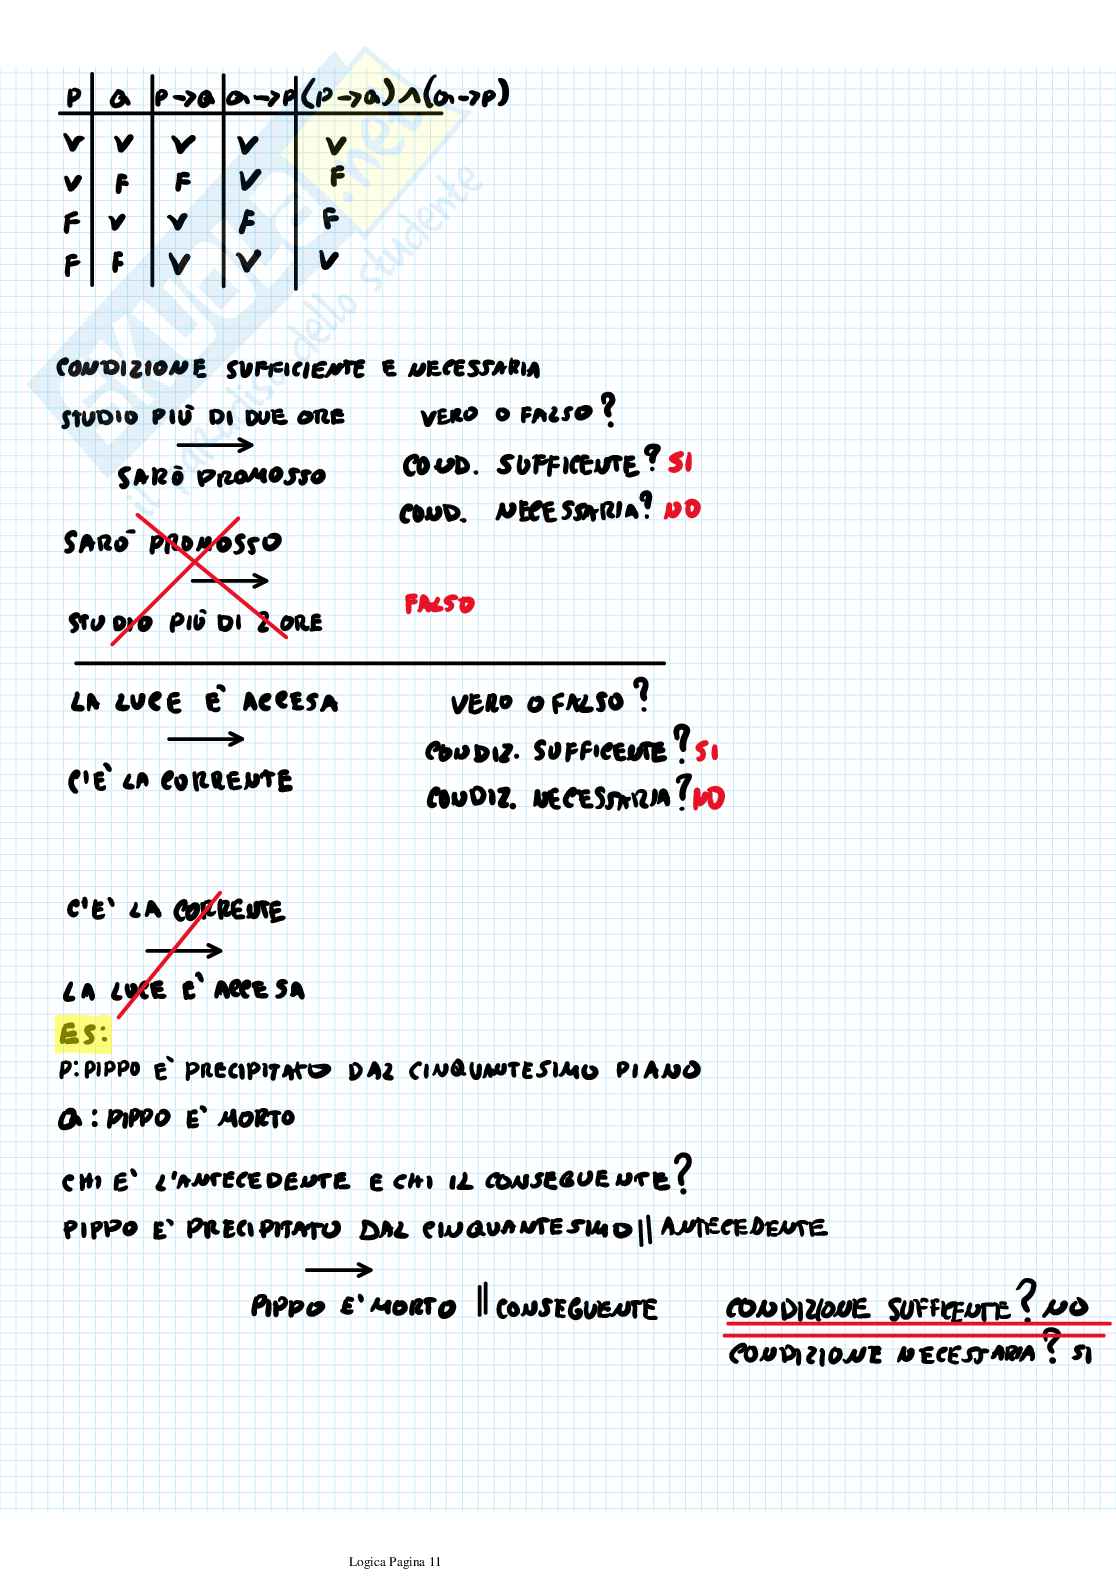 P Q P→Q Q→P (P→Q)∧(Q→P)
V V V V V
V F F V F
F V V F F
F F V V V
SKUOLA.net
il paradiso dello studente
CONDIZIONE SUFFICIENTE E NECESSARIA
STUDIO PIÙ DI DUE ORE VERO O FALSO?
→
SARÒ PROMOSSO COND. SUFFICENTE? SI
COND. NECESSARIA? NO
SARÒ PROMOSSO
→
FALSO
STUDIO PIÙ DI 2 ORE
LA LUCE È ACCESA VERO O FALSO?
→
CONDIZ. SUFFICENTE? SI
C'È LA CORRENTE
CONDIZ. NECESSARIA? NO
C'È LA CORRENTE
→
LA LUCE È ACCESA
ES:
P: PIPPO È PRECIPITATO DAL CINQUANTESIMO PIANO
Q: PIPPO È MORTO
CHI È L'ANTECEDENTE E CHI IL CONSEGUENTE?
PIPPO È PRECIPITATO DAL CINQUANTESIMO || ANTECEDENTE
→
PIPPO È MORTO || CONSEGUENTE CONDIZIONE SUFFICENTE? NO
CONDIZIONE NECESSARIA? SI
Logica Pagina 11